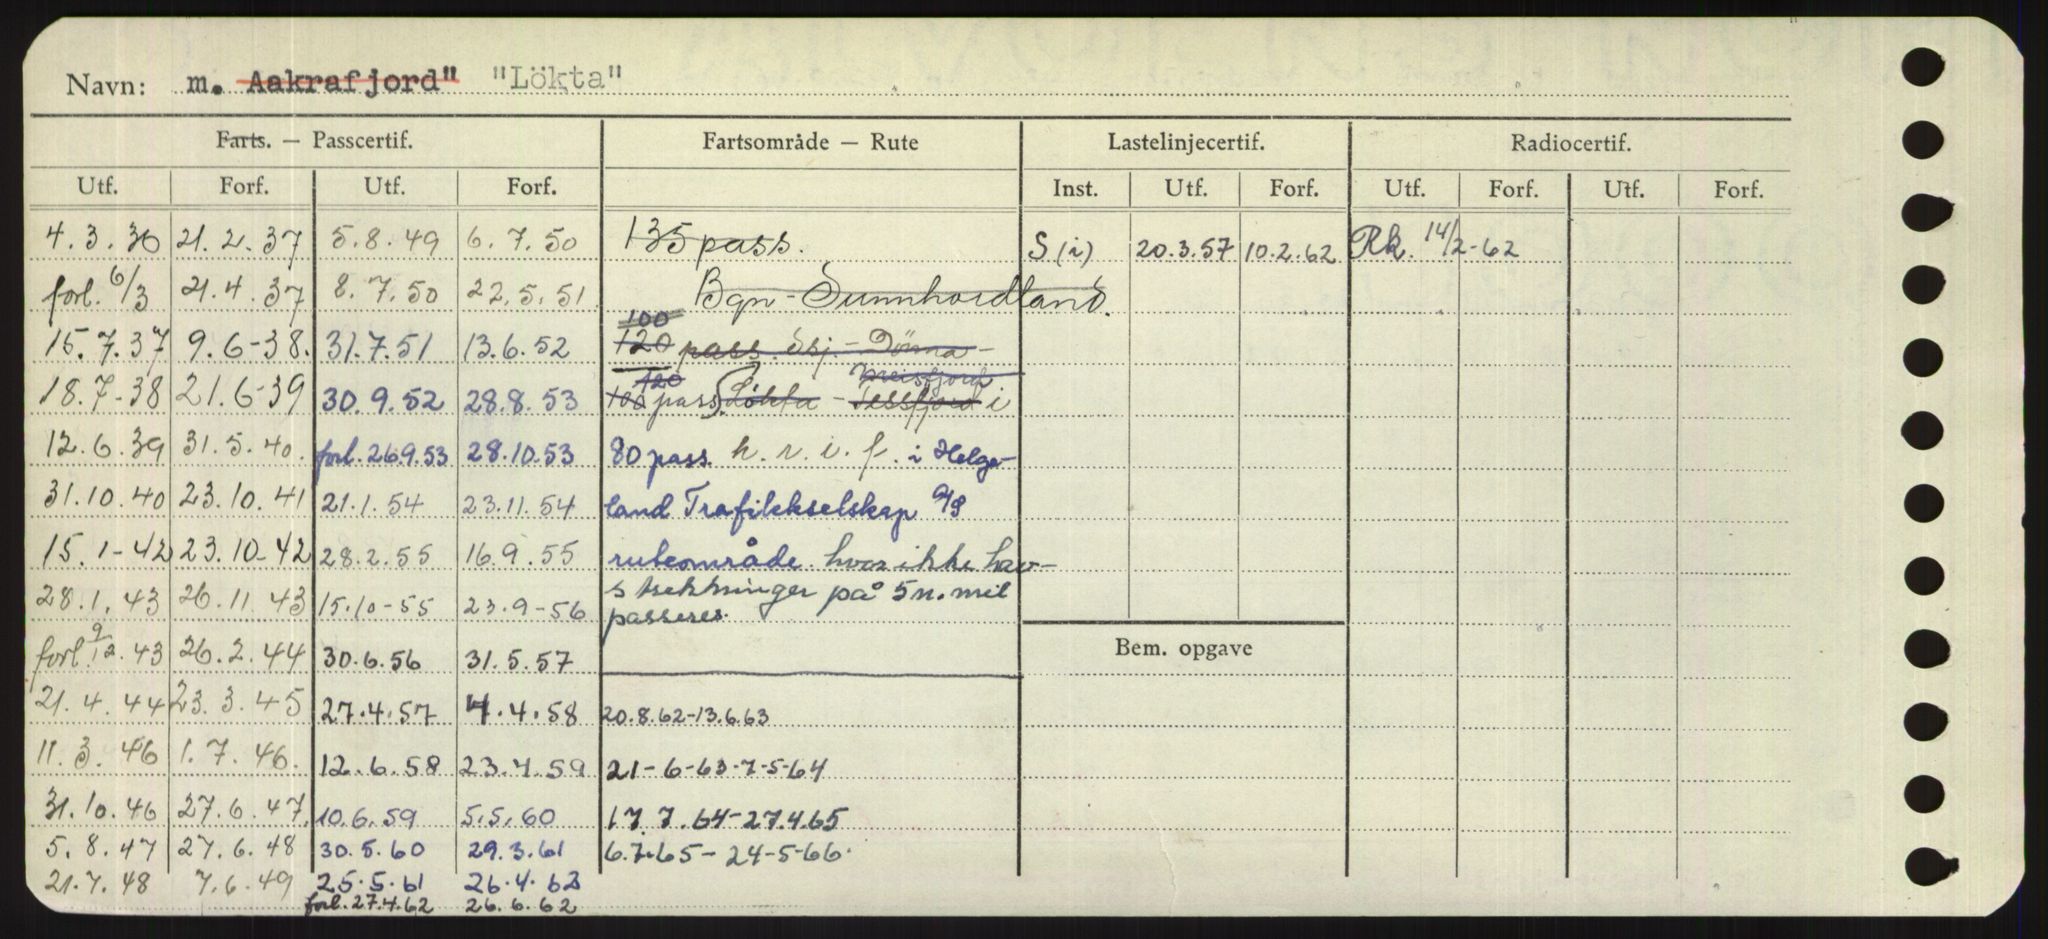 Navn: m. Aakrafjord" "Lökta"
Farts. — Passcertif. Fartsområde — Rute Lastelinjecertif. Radiocertif.
Utf. Forf. Utf. Forf. Inst. Utf. Forf. Utf. Forf. Utf. Forf.
4.3.36 21.2.37 5.8.49 6.7.50 135 pass. S (i) 20.3.57 10.2.62 Rk. 14/2-62
forl. 6/3 21.4.37 8.7.50 22.5.51 Bgn - Sunnhordland.
100
15.7.37 9.6-38. 31.7.51 13.6.52 120 pass. Skj. - Dönna -
120 Meisfjord
18.7-38 21.6-39 30.9.52 28.8.53 100 pass. Løkta - i
12.6.39 31.5.40. forl. 26.9.53 28.10.53 80 pass. h. r. i. f. i Helge-
31.10.40 23.10.41 21.1.54 23.11.54 land Trafikkselskap A/S
15.1-42 23.10-42 28.2.55 16.9.55 ruteområde hvor ikke hav-
28.1.43 26.11.43 15.10-55 23.9-56 strekninger på 5 n. mil
passeres.
forl. 9/12.43 26.2.44 30.6.56 31.5.57 Bem. opgave
21.4.44 23.3.45 27.4.57 4.4.58 20.8.62-13.6.63
11.3.46 1.7.46. 12.6.58 23.4.59 21-6-63-7-5-64
31.10.46 27.6.47. 10.6.59 5.5.60 17.7.64-27.4.65
5.8.47 27.6.48 30.5.60 29.3.61 6.7.65-24-5-66.
21.7.48 7.6.49 25.5.61 26.4.62
forl. 27.4.62 26.6.62